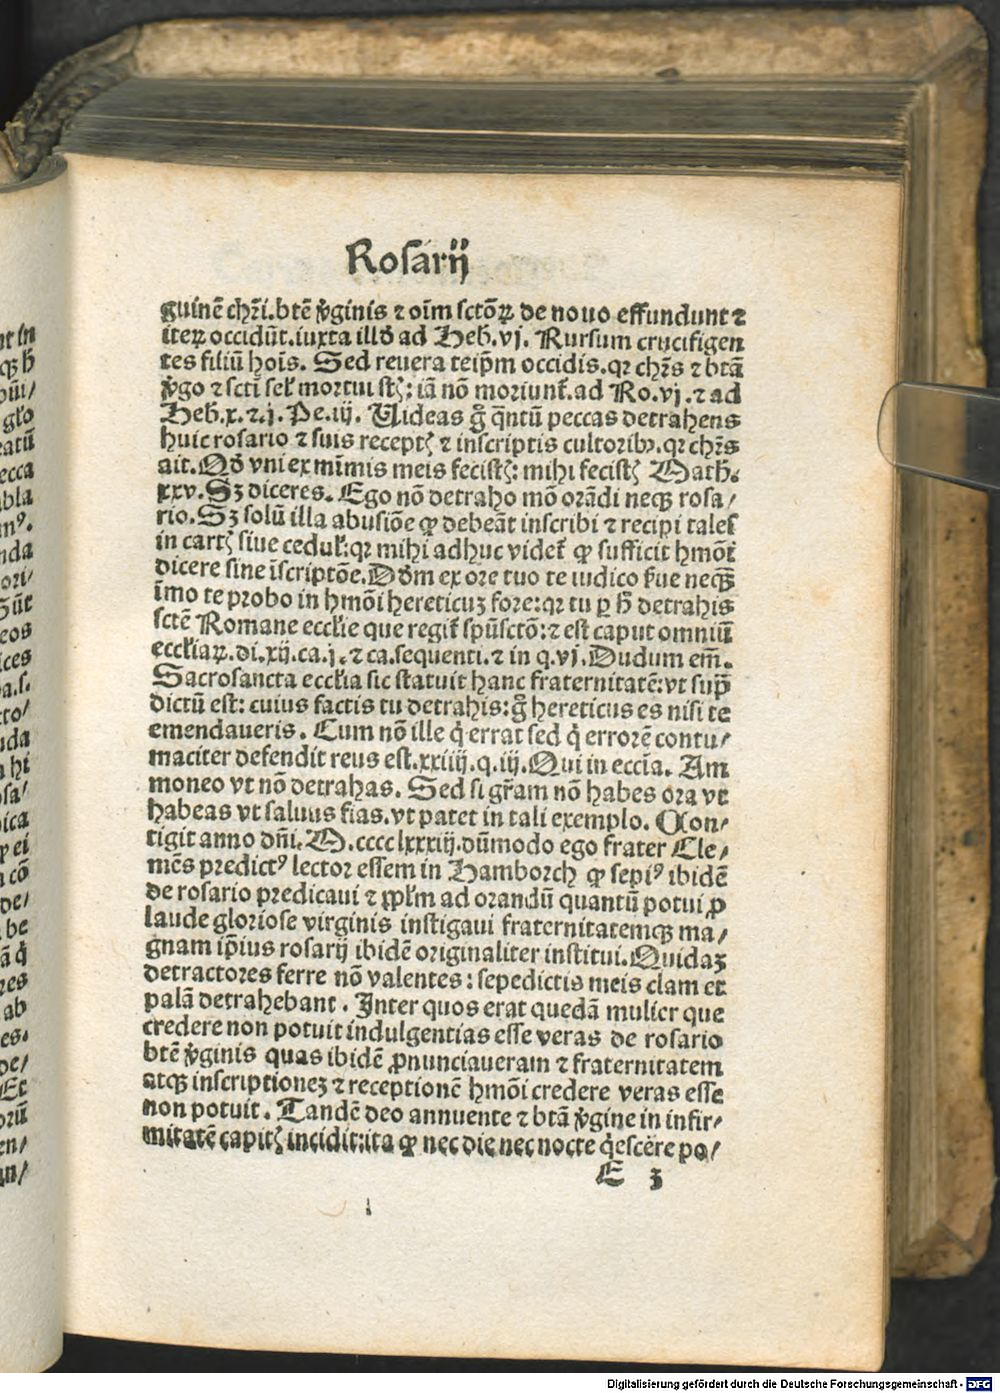 Rosarij
guinē chr̄i.btē v̄ginis ⁊ oīm sctōꝝ de nouo effundunt ⁊
iteꝝ occidūt.iuxta illđ ad Heb̄.vj. Rursum crucifigen
tes filiū hoīs. Sed reuera teip̄m occidis.qꝛ chr̄s ⁊ btā
v̄go ⁊ sctī sel̄ mortui stꝭ: iā nō moriunt̄.ad Ro.vj.⁊ ad
Heb̄.x.⁊.j.Pe.iij. Uideas g̊ q̄ntū peccas detrahens
huic rosario ⁊ suis receptꝭ ⁊ inscriptis cultorib⁹.qꝛ chr̄s
ait.Qđ vni ex mīmis meis fecistꝭ: mihi fecistꝭ Math̄.
xxv.Sꝫ diceres. Ego nō detraho mō orādi neqꝫ rosa/
rio.Sꝫ solū illa abusiōe ꝙ debeāt inscribi ⁊ recipi tales
in cartꝭ siue cedul̄:qꝛ mihi adhuc videt̄ ꝙ sufficit hmōi
dicere sine īscriptōe.Dđm ex ore tuo te iudico s̄ue neqꝫ
īmo te probo in hmōi hereticuꝫ fore:qꝛ tu ꝑ h̄ detrahis
sctē Romane eccl̄ie que regit̄ spūsctō:⁊ est caput omniū
eccl̄iaꝝ.di.xij.ca.j.⁊ ca.sequenti.⁊ in q.vj.Dudum em̄.
Sacrosancta eccl̄ia sic statuit hanc fraternitatē:vt sup̄
dictū est: cuius factis tu detrahis:g̊ hereticus es nisi te
emendaueris. Cum nō ille q̇ errat sed q̇ errorē contu/
maciter defendit reus est.xxiiij.q.iij.Qui in eccīa. Am
moneo vt nō detrahas. Sed si gr̄am nō habes ora vt
habeas vt saluus fias.vt patet in tali exemplo. Con/
tigit anno dn̄i.M.cccclxxxiij.dūmodo ego frater Cle/
mēs predict⁹ lector essem in Hamborch ꝙ sepi⁹ ibidē
de rosario predicaui ⁊ ppl̄m ad orandū quantū potui ꝓ
laude gloriose virginis instigaui fraternitatemqꝫ ma/
gnam ip̄ius rosarij ibidē originaliter institui.Quidaꝫ
detractores ferre nō valentes: sepedictis meis clam et
palā detrahebant. Inter quos erat quedā mulier que
credere non potuit indulgentias esse veras de rosario
btē v̄ginis quas ibidē ꝓnunciaueram ⁊ fraternitatem
atqꝫ inscriptioneꝫ ⁊ receptionē hmōi credere veras esse
non potuit. Tandē deo annuente ⁊ btā v̄gine in infir/
mitatē capitꝭ incidit:ita ꝙ nec die nec nocte q̇escere po/
E 3
Digitalisierung gefördert durch die Deutsche Forschungsgemeinschaft - DFG